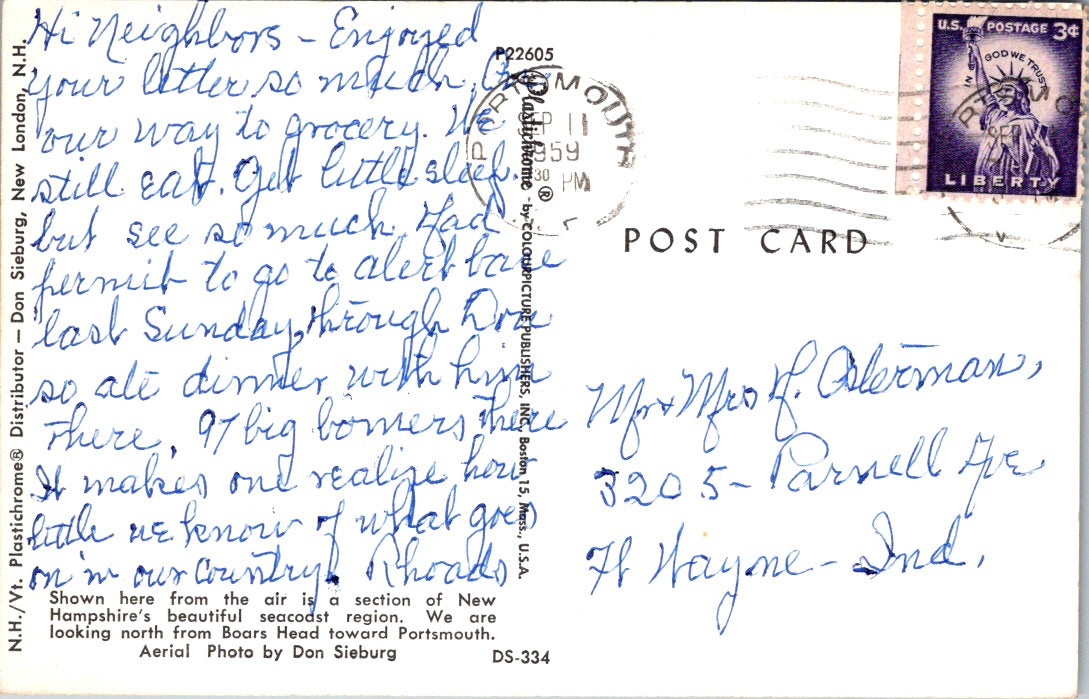 Hi Neighbors – Enjoyed
your letter so much. On
our way to grocery. We
still eat. Get little sleep.
but see so much. Had
permit to go to alert base
last Sunday, through Don
so ate dinner with him
There, 97 big bomers there
It makes one realize how
little we know of what goes
on in our country. Rhoads
Shown here from the air is a section of New
Hampshire's beautiful seacoast region. We are
looking north from Boars Head toward Portsmouth.
Aerial Photo by Don Sieburg
DS-334
N.H./Vt. Plastichrome® Distributor — Don Sieburg, New London, N.H.
P22605
Plastichrome ® by COLOURPICTURE PUBLISHERS, INC., Boston 15, Mass., U.S.A.
SEP 11
1959
30 PM
POST CARD
U.S. POSTAGE 3¢
IN GOD WE TRUST
LIBERTY
Mr + Mrs H. Osterman,
3205 – Parnell Ave
Ft Wayne – Ind.